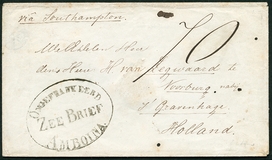 via Southampton.
70
den Heer H van Regwaard te
Voorburg nabij
s' Gravenhage
Holland.
ONGEFRANKEERD
ZEE BRIEF
AMBOINA